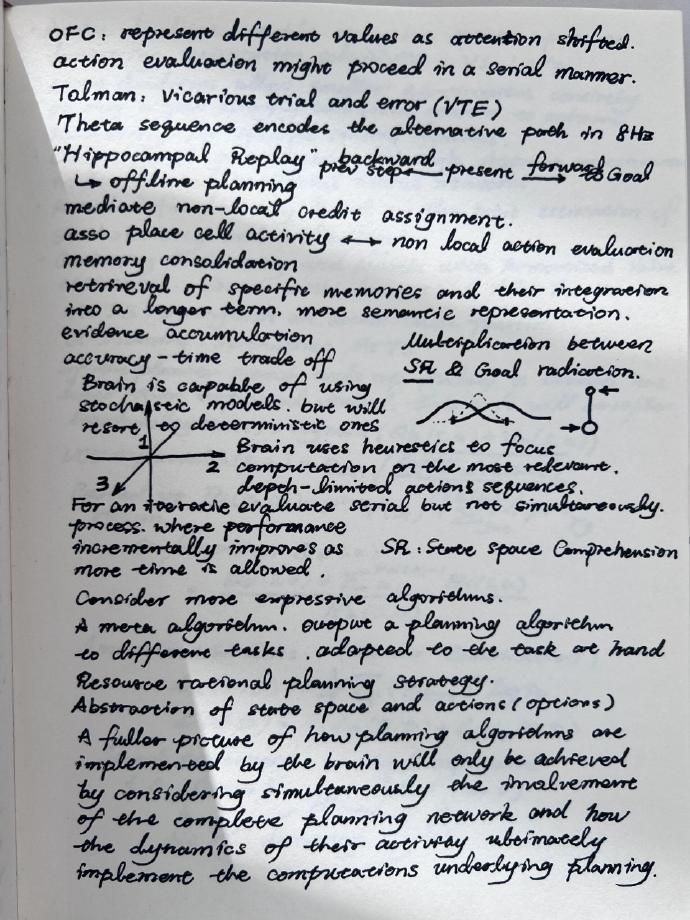 OFC: represent different values as attention shifted.
action evaluation might proceed in a serial manner.
Talman: Vicarious trial and error (VTE)
Theta sequence encodes the alternative path in 8Hz
"Hippocampal Replay" backward prev step ← present forward → to Goal
↳ offline planning
mediate non-local credit assignment.
asso place cell activity ↔ non local action evaluation
memory consolidation
retrieval of specific memories and their integration
into a longer term, more semantic representation.
evidence accumulation
accuracy - time trade off
Multiplication between
SR & Goal radiation.
Brain is capable of using
stochastic models. but will
resort to deterministic ones
1
2
3
Brain uses heurestics to focus
computation on the most relevant.
depth-limited actions sequences.
For an iterative evaluate serial but not simultaneously.
process. where performance
incrementally improves as
more time is allowed.
SR: State space Comprehension
Consider more expressive algorithms.
A meta algorithm. output a planning algorithm
to different tasks. adapted to the task at hand
Resource rational planning strategy.
Abstraction of state space and actions (options)
A fuller picture of how planning algorithms are
implemented by the brain will only be achieved
by considering simultaneously the involvement
of the complete planning network and how
the dynamics of their activity ultimately
implement the computations underlying planning.